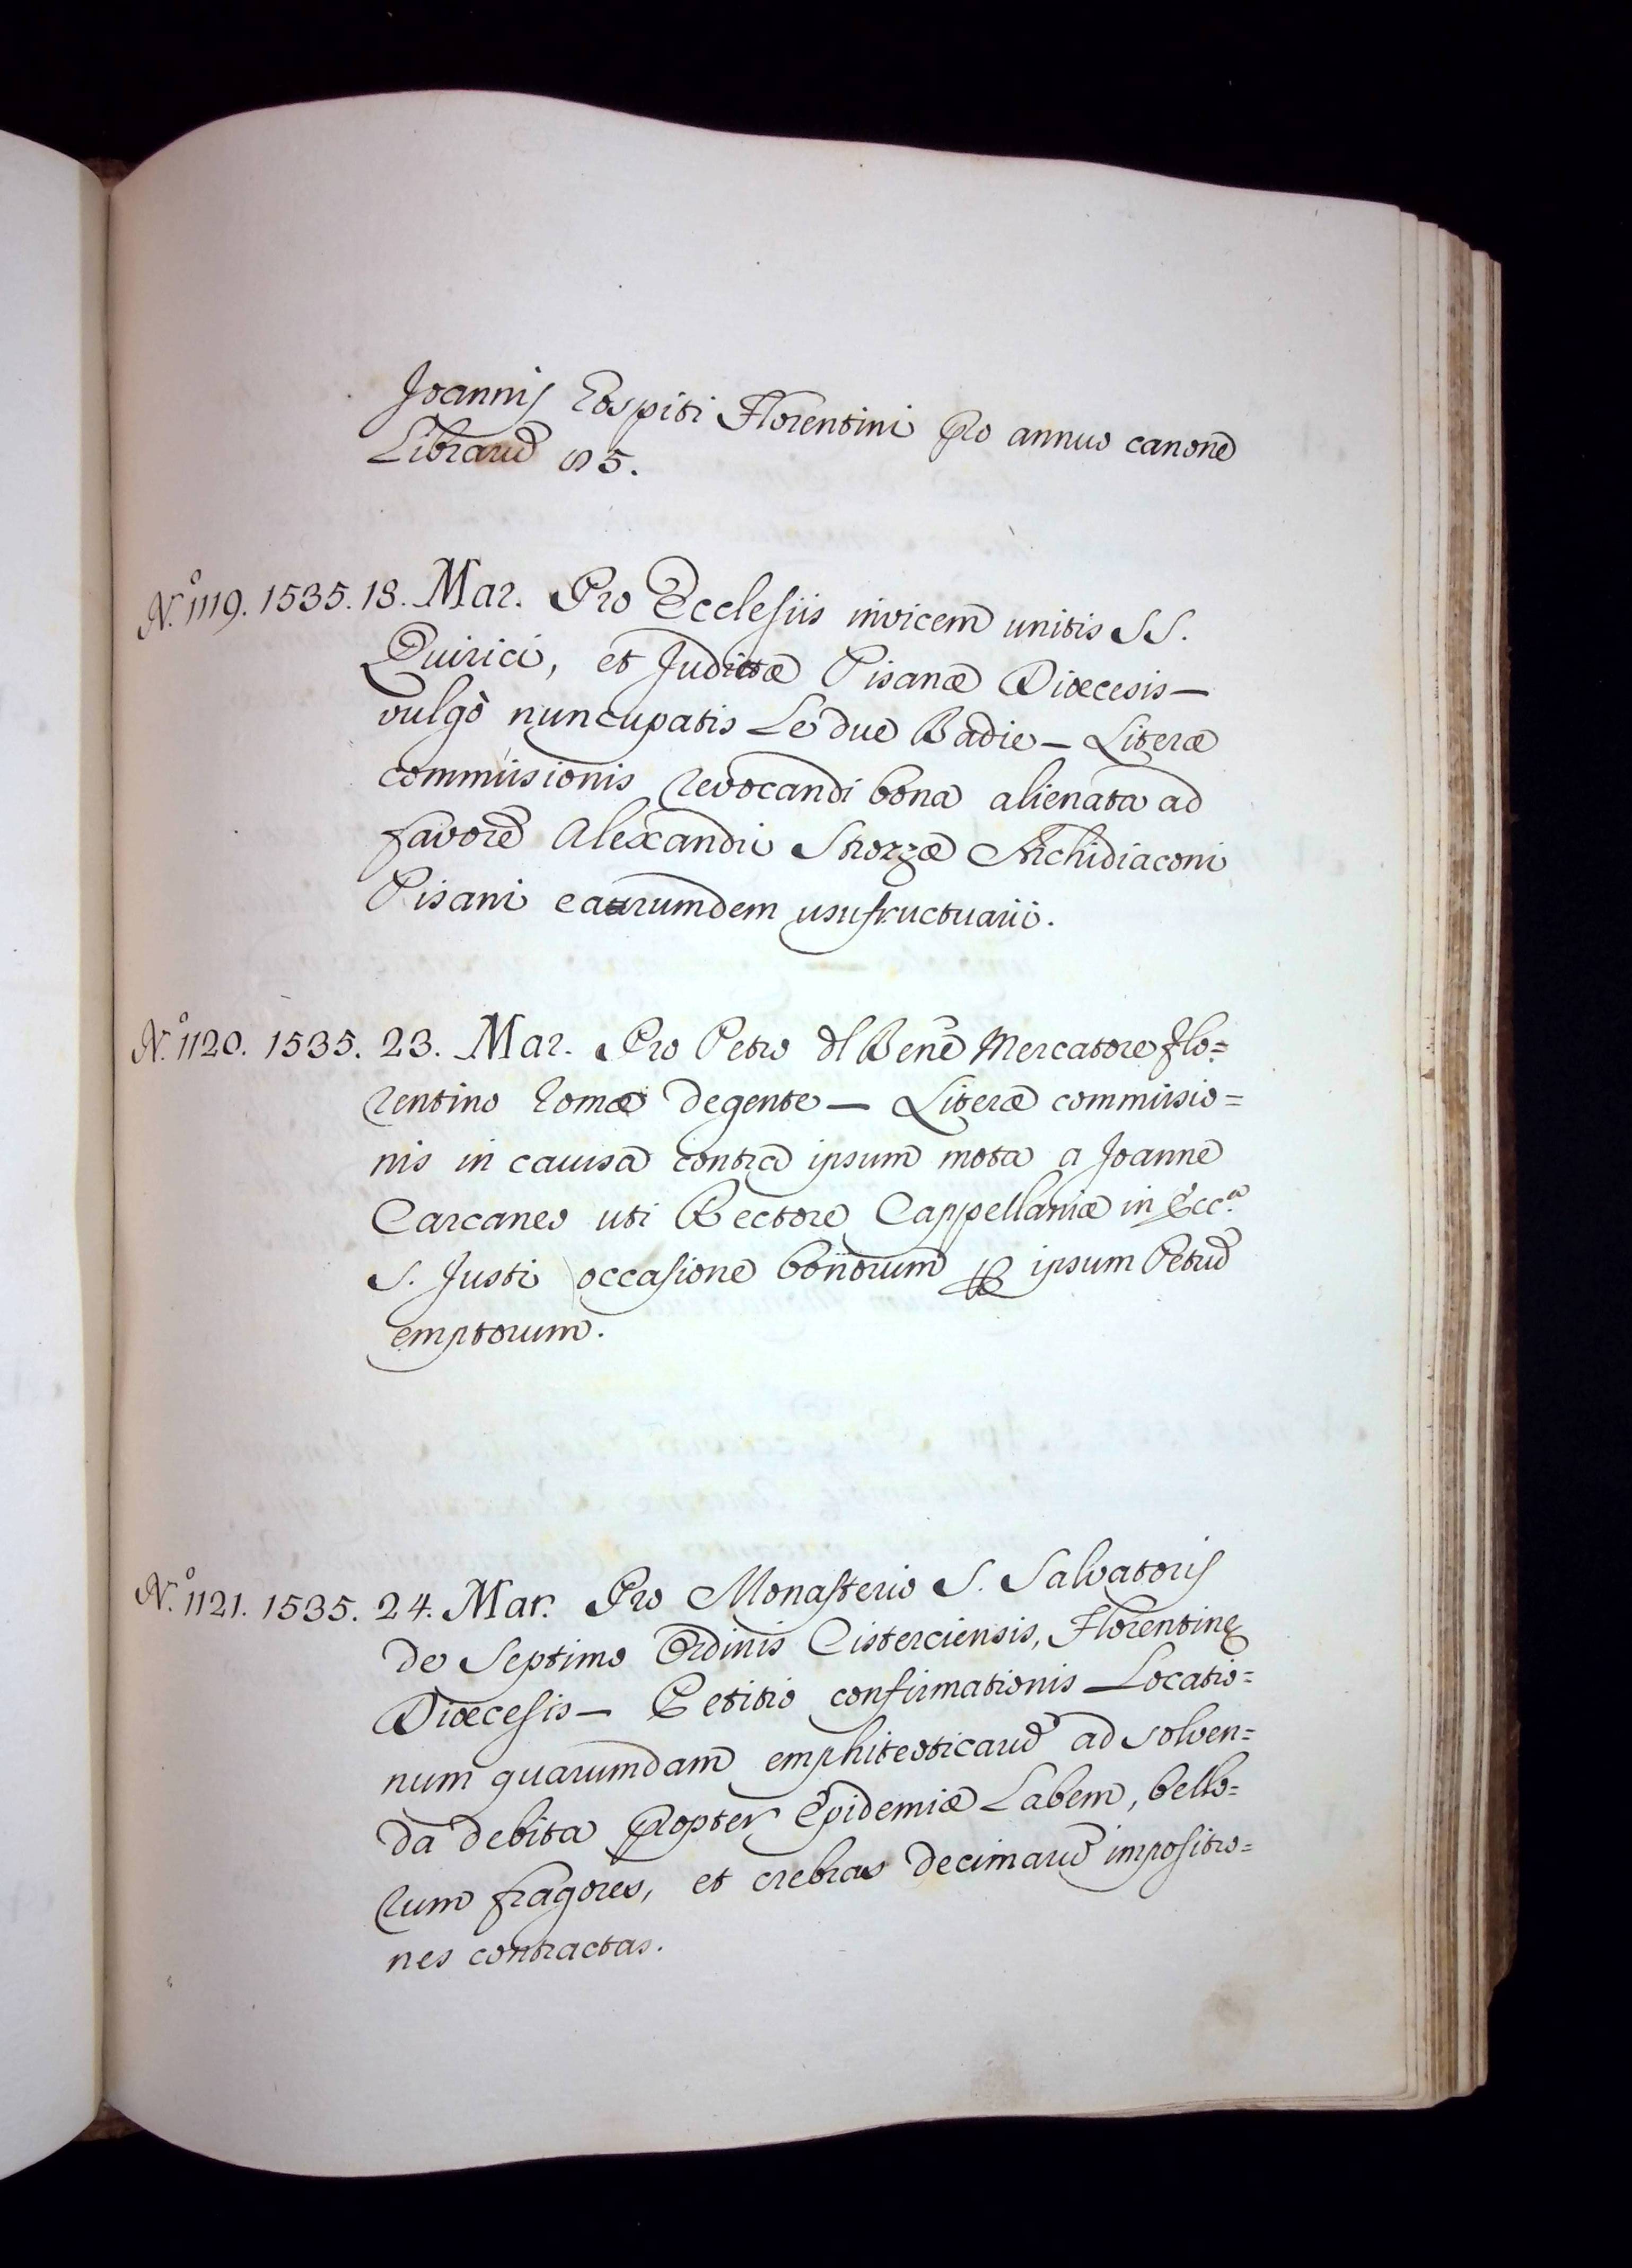 Joannis Rospiti Florentini pro annuo canone
Librarũ 85.
N.º 1119. 1535. 18. Mar. Pro Ecclesiis invicem unitis SS.
Quirici, et Judittæ Pisanæ Diœcesis —
vulgò nuncupatis Le due Badie — Literæ
commissionis revocandi bona alienata ad
favorẽ Alexandri Strozzæ Archidiaconi
Pisani earumdem usufructuarii.
N.º 1120. 1535. 23. Mar. Pro Petro dl Bene Mercatore Flo=
rentino Romæ degente — Literæ commissio=
nis in causa contra ipsum mota a Joanne
Carcaneo uti Rectore Cappellaniæ in Ecc.ª
S. Justi occasione bonorum ꝑ ipsum Petrũ
emptorum.
N.º 1121. 1535. 24. Mar. Pro Monasterio S. Salvatoris
de Septimo Ordinis Cisterciensis, Florentinę
Diœcesis — Petitio confirmationis Locatio=
num quarumdam emphiteoticarũ ad solven=
da debita propter Epidemiæ Labem, bello=
rum fragores, et crebras decimarũ impositio=
nes contractas.